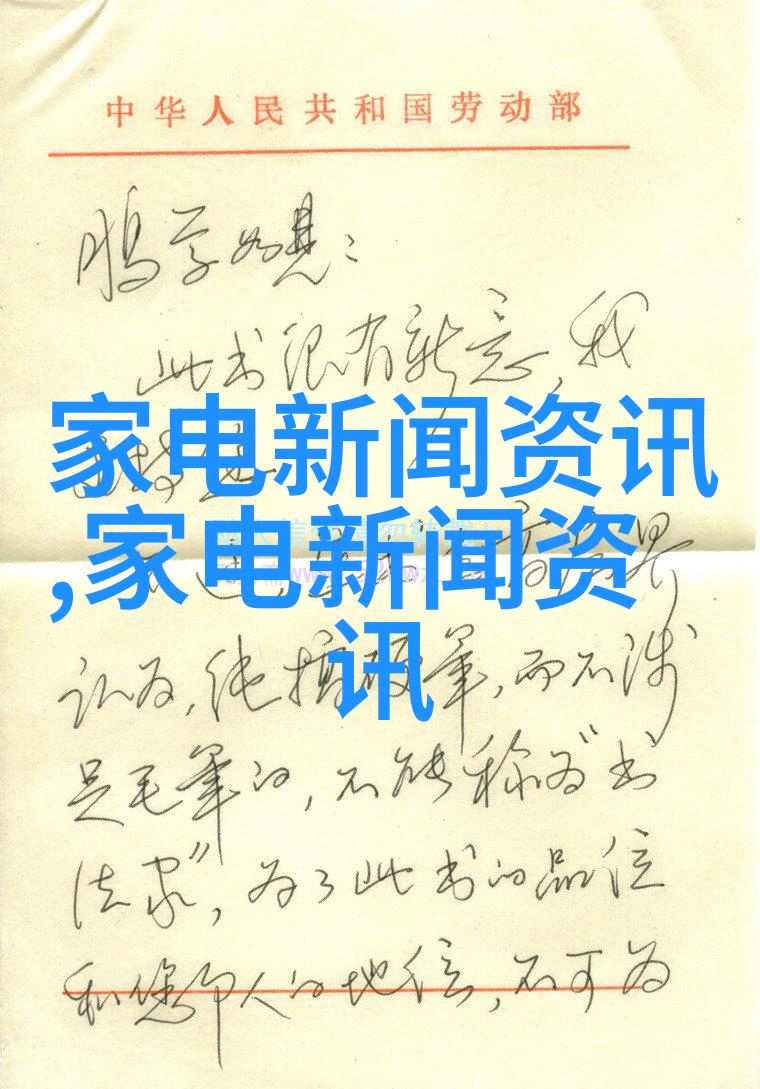 中华人民共和国劳动部
鹏学如晤：
此书很有新意，我
家电新闻资讯
,家电新闻资
讯
认为，纯搞硬笔，而不涉
足毛笔的，不能称为“书
法家”，为了此书的品位
和您个人的地位，不可为